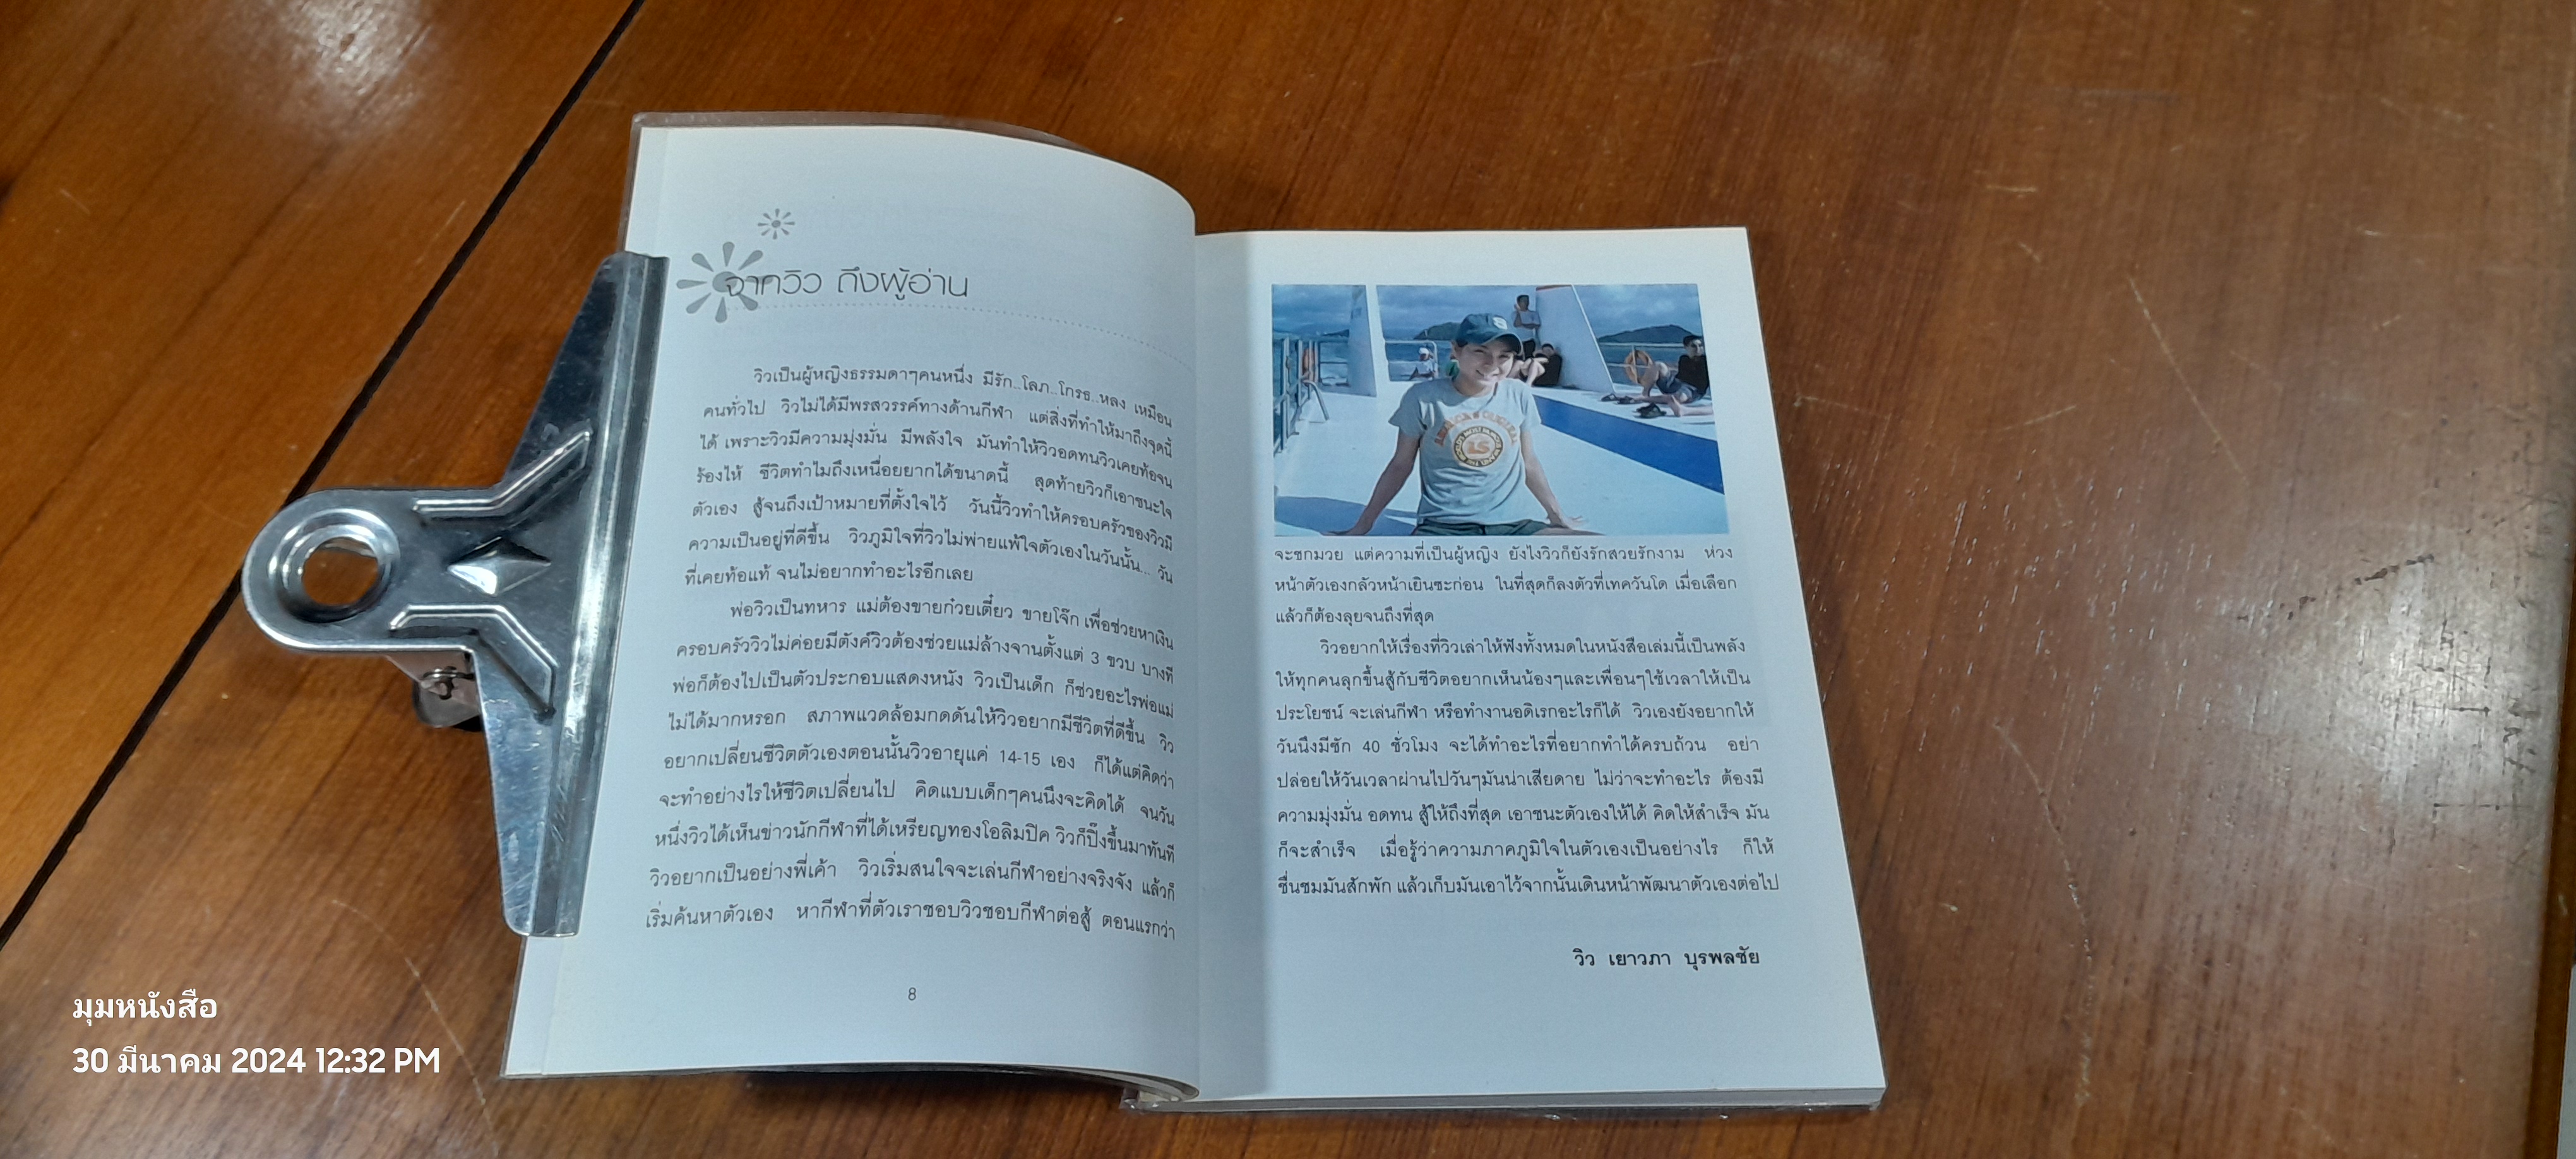 จากวิว ถึงผู้อ่าน
วิวเป็นผู้หญิงธรรมดาๆคนหนึ่ง มีรัก...โลภ...โกรธ...หลง เหมือน
คนทั่วไป วิวไม่ได้มีพรสวรรค์ทางด้านกีฬา แต่สิ่งที่ทำให้มาถึงจุดนี้
ได้ เพราะวิวมีความมุ่งมั่น มีพลังใจ มันทำให้วิวอดทนวิวเคยท้อจน
ร้องไห้ ชีวิตทำไมถึงเหนื่อยยากได้ขนาดนี้ สุดท้ายวิวก็เอาชนะใจ
ตัวเอง สู้จนถึงเป้าหมายที่ตั้งใจไว้ วันนี้วิวทำให้ครอบครัวของวิวมี
ความเป็นอยู่ที่ดีขึ้น วิวภูมิใจที่วิวไม่พ่ายแพ้ใจตัวเองในวันนั้น... วัน
ที่เคยท้อแท้ จนไม่อยากทำอะไรอีกเลย
พ่อวิวเป็นทหาร แม่ต้องขายก๋วยเตี๋ยว ขายโจ๊ก เพื่อช่วยหาเงิน
ครอบครัววิวไม่ค่อยมีตังค์วิวต้องช่วยแม่ล้างจานตั้งแต่ 3 ขวบ บางที
พ่อก็ต้องไปเป็นตัวประกอบแสดงหนัง วิวเป็นเด็ก ก็ช่วยอะไรพ่อแม่
ไม่ได้มากหรอก สภาพแวดล้อมกดดันให้วิวอยากมีชีวิตที่ดีขึ้น วิว
อยากเปลี่ยนชีวิตตัวเองตอนนั้นวิวอายุแค่ 14-15 เอง ก็ได้แต่คิดว่า
จะทำอย่างไรให้ชีวิตเปลี่ยนไป คิดแบบเด็กๆคนนึงจะคิดได้ จนวัน
หนึ่งวิวได้เห็นข่าวนักกีฬาที่ได้เหรียญทองโอลิมปิค วิวก็ปิ๊งขึ้นมาทันที
วิวอยากเป็นอย่างพี่เค้า วิวเริ่มสนใจจะเล่นกีฬาอย่างจริงจัง แล้วก็
เริ่มค้นหาตัวเอง หากีฬาที่ตัวเราชอบวิวชอบกีฬาต่อสู้ ตอนแรกว่า
8
จะชกมวย แต่ความที่เป็นผู้หญิง ยังไงวิวก็ยังรักสวยรักงาม ห่วง
หน้าตัวเองกลัวหน้าเยินซะก่อน ในที่สุดก็ลงตัวที่เทควันโด เมื่อเลือก
แล้วก็ต้องลุยจนถึงที่สุด
วิวอยากให้เรื่องที่วิวเล่าให้ฟังทั้งหมดในหนังสือเล่มนี้เป็นพลัง
ให้ทุกคนลุกขึ้นสู้กับชีวิตอยากเห็นน้องๆและเพื่อนๆใช้เวลาให้เป็น
ประโยชน์ จะเล่นกีฬา หรือทำงานอดิเรกอะไรก็ได้ วิวเองยังอยากให้
วันนึงมีซัก 40 ชั่วโมง จะได้ทำอะไรที่อยากทำได้ครบถ้วน อย่า
ปล่อยให้วันเวลาผ่านไปวันๆมันน่าเสียดาย ไม่ว่าจะทำอะไร ต้องมี
ความมุ่งมั่น อดทน สู้ให้ถึงที่สุด เอาชนะตัวเองให้ได้ คิดให้สำเร็จ มัน
ก็จะสำเร็จ เมื่อรู้ว่าความภาคภูมิใจในตัวเองเป็นอย่างไร ก็ให้
ชื่นชมมันสักพัก แล้วเก็บมันเอาไว้จากนั้นเดินหน้าพัฒนาตัวเองต่อไป
วิว เยาวภา บุรพลชัย
มุมหนังสือ
30 มีนาคม 2024 12:32 PM